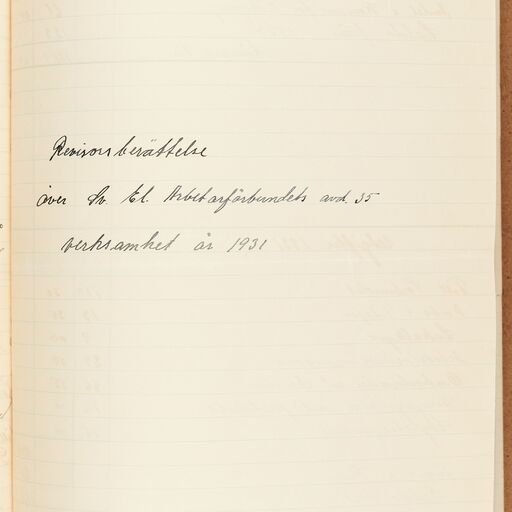 Revisorsberättelse
över Sv. El. Arbetarförbundets avd. 35
verksamhet år 1931